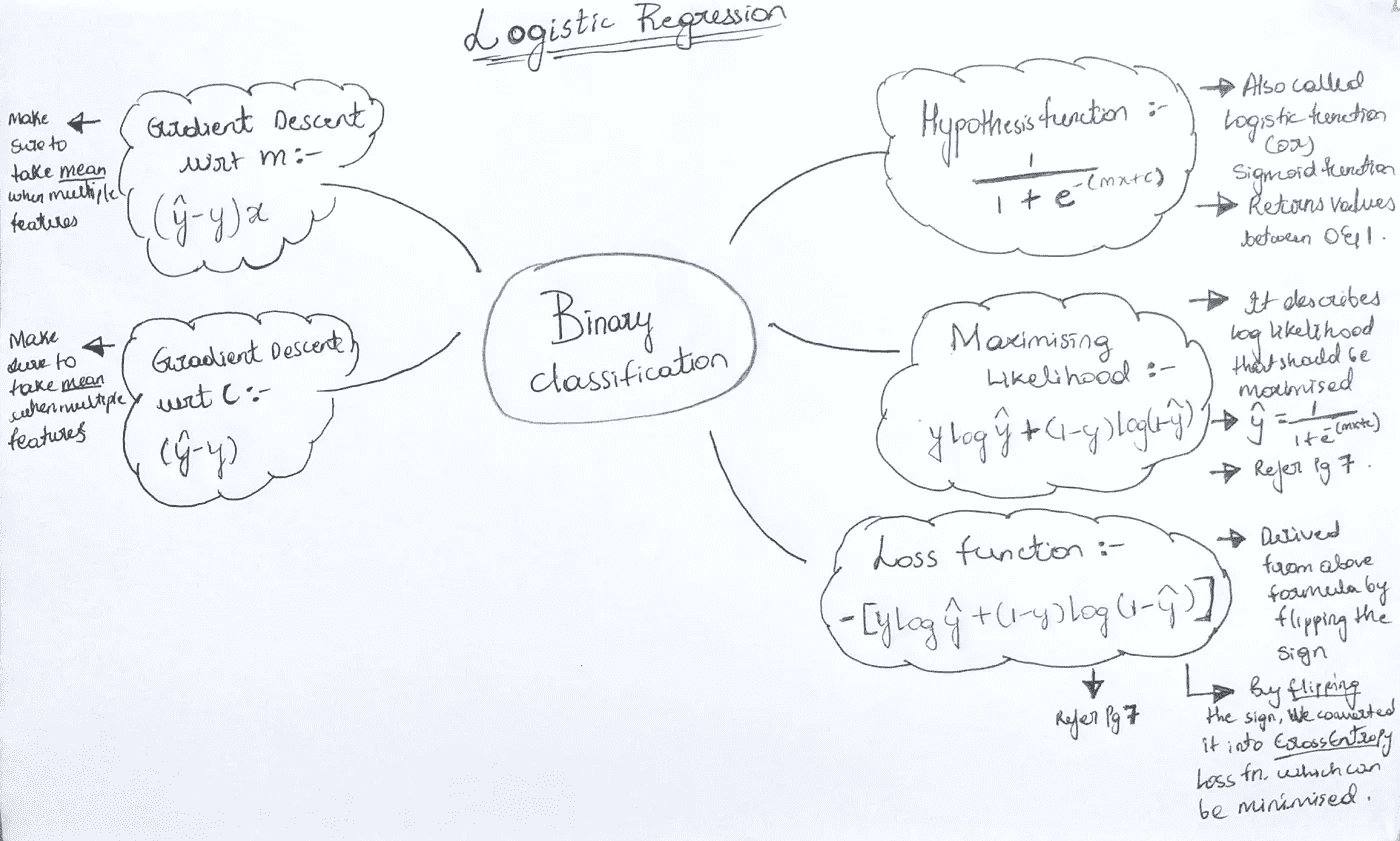 Logistic Regression
Make
sure to
take mean
when multiple
features
Gradient Descent
wrt m:-
(ŷ-y)x
Make
sure to
take mean
when multiple
features
Gradient Descent
wrt c:-
(ŷ-y)
Binary
classification
Hypothesis function :-
1
1 + e^-(mx+c)
→ Also called
Logistic function
(or)
Sigmoid function
→ Returns values
between 0 & 1.
Maximising
Likelihood :-
y log ŷ + (1-y) log(1-ŷ)
→ It describes
log likelihood
that should be
maximised
→ ŷ = 1/1+e^-(mx+c)
→ Refer Pg 7.
Loss function :-
-[y log ŷ + (1-y) log (1-ŷ)]
→ Derived
from above
formula by
flipping the
sign
Refer Pg 7
→ By flipping
the sign, We converted
it into CrossEntropy
Loss fn. which can
be minimised.